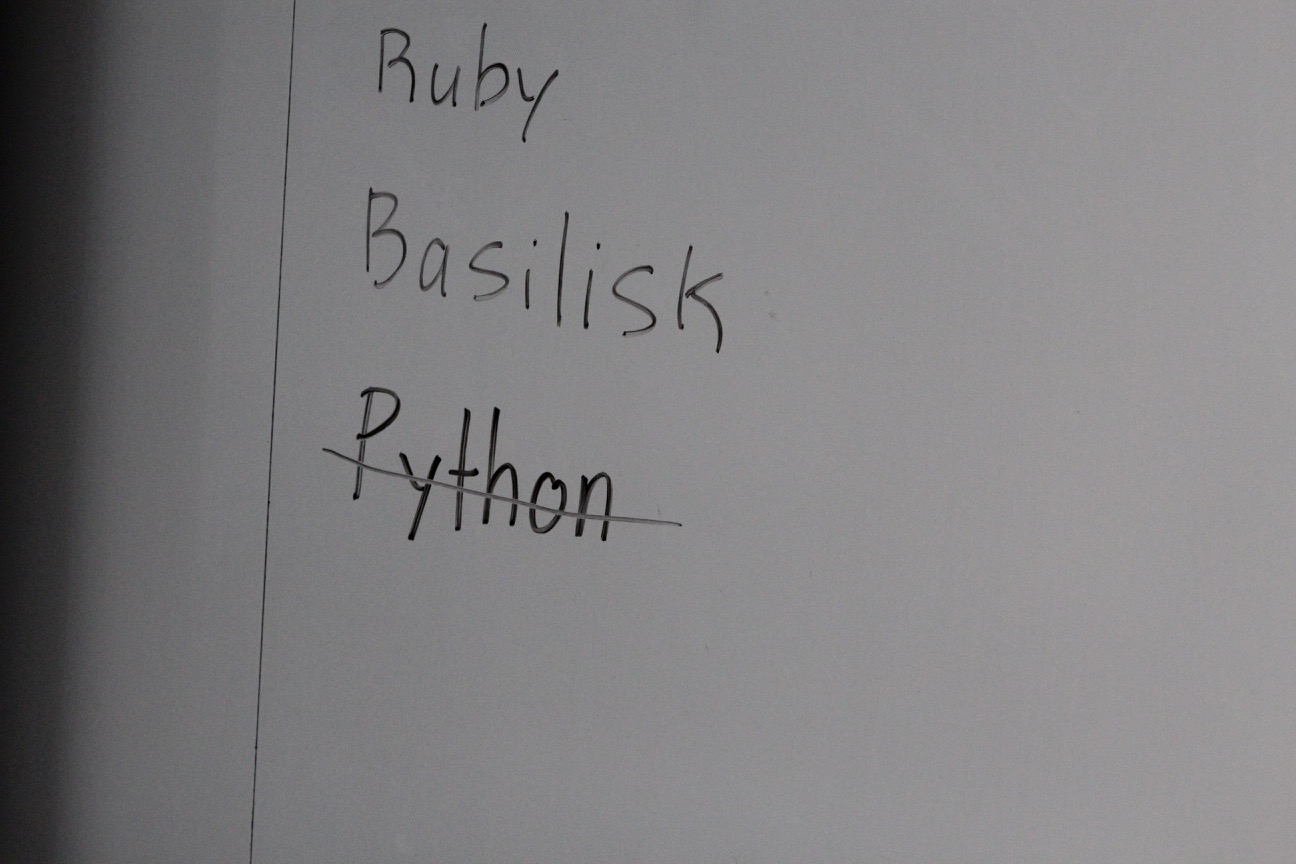 Ruby
Basilisk
Python